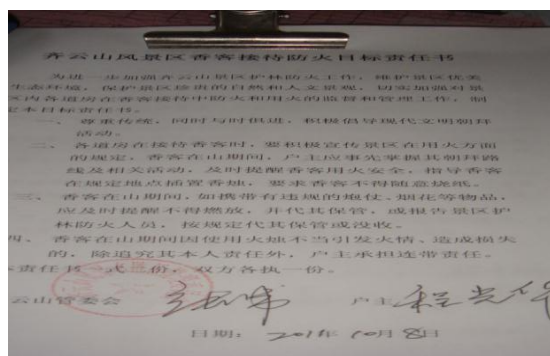 齐云山风景区香客接待防火目标责任书
为进一步加强齐云山景区护林防火工作，维护景区优美
生态环境，保护景区珍贵的自然和人文景观，切实加强对景
区内各道房在香客接待中防火和用火的监督和管理工作，制
定本目标责任书。
一、 尊重传统，同时与时俱进，积极倡导现代文明朝拜
活动。
二、 各道房在接待香客时，要积极宣传景区在用火方面
的规定，香客在山期间，户主应事先掌握其朝拜路
线及相关活动，及时提醒香客用火安全，指导香客
在规定地点插置香烛，要求香客不得随意烧纸。
三、 香客在山期间，如携带有违规的炮仗、烟花等物品，
应及时提醒不得燃放，并代其保管，或报告景区护
林防火人员，按规定代其保管或没收。
四、 香客在山期间因使用火烛不当引发火情、造成损失
的，除追究其本人责任外，户主承担连带责任。
责任书一式 份，双方各执一份。
云山管委会 户主
日期： 201 年 10月8日